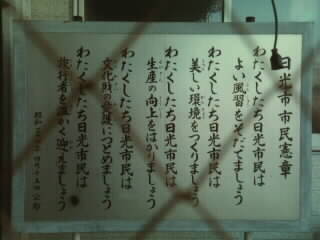 日光市市民憲章
わたくしたち日光市民は
よい風習をそだてましょう
わたくしたち日光市民は
美しい環境をつくりましょう
わたくしたち日光市民は
生産の向上をはかりましょう
わたくしたち日光市民は
文化財の愛護につとめましょう
わたくしたち日光市民は
旅行者を温かく迎えましょう